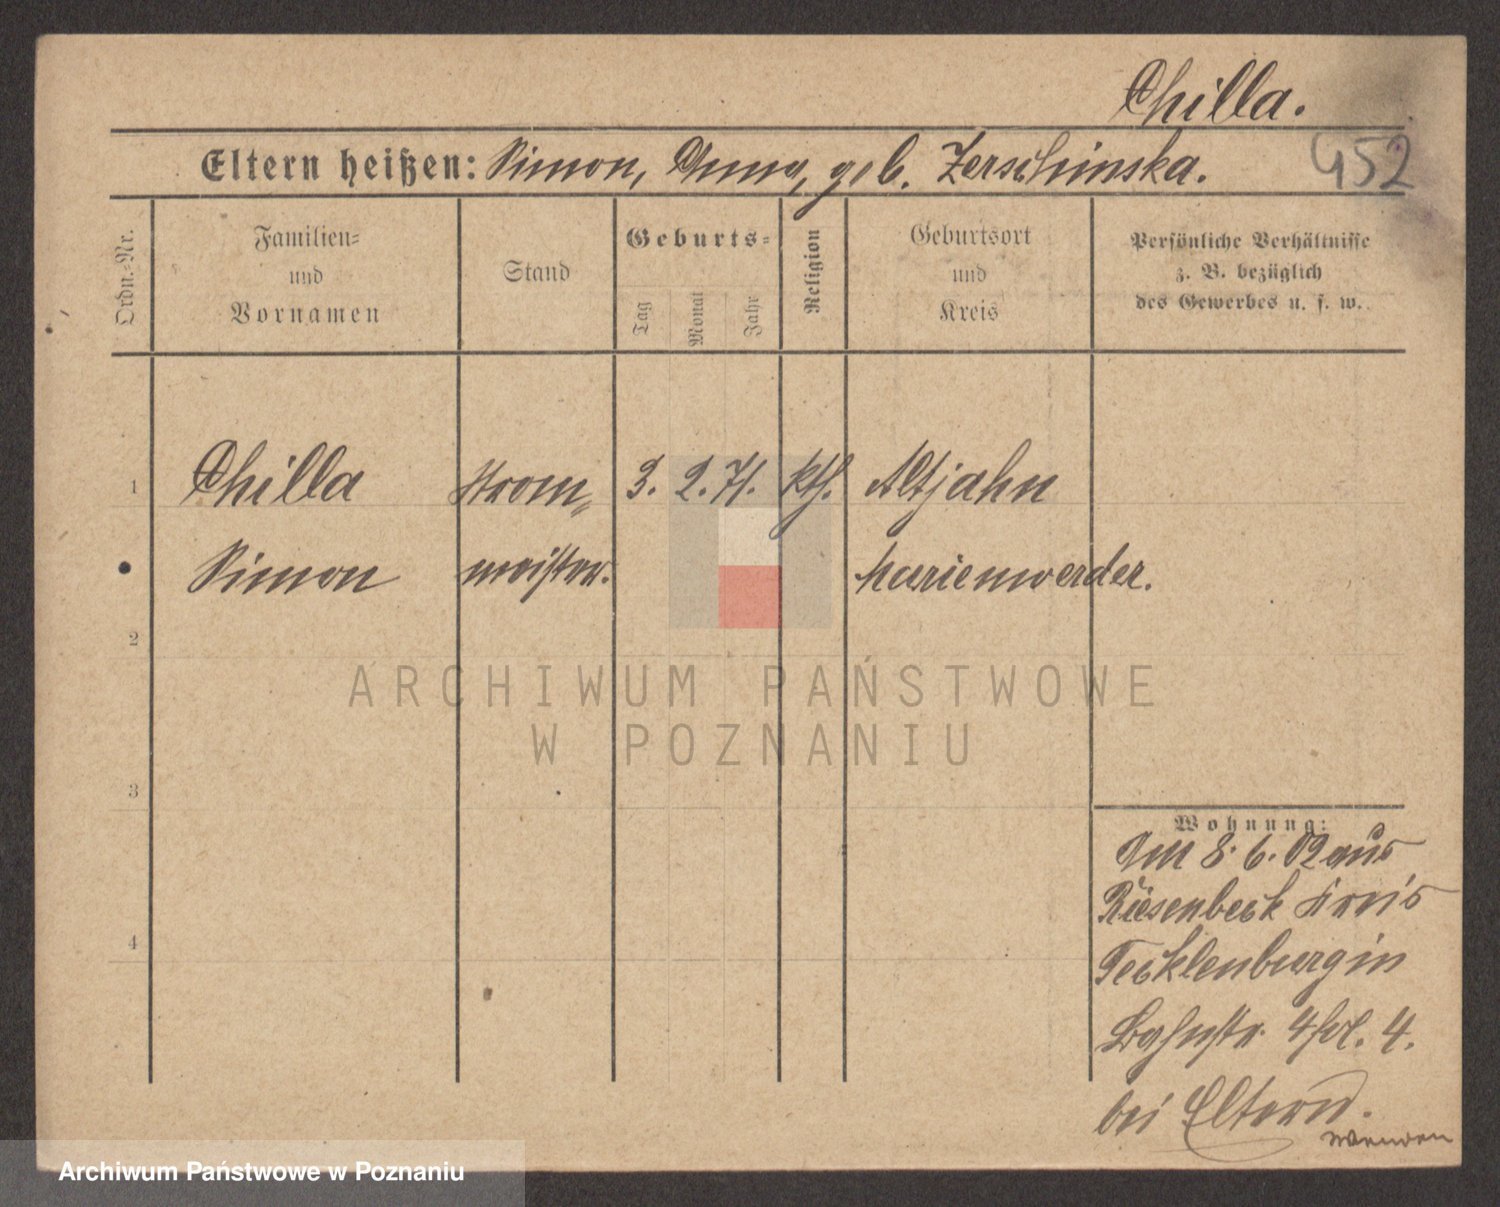 Chilla.
Eltern heißen: Simon, Anna, geb. Zerschinska.
G52
Ordn.-Nr.
Familien-
und
Vornamen
Stand
Geburts-
Tag
Monat
Jahr
Religion
Geburtsort
und
Kreis
Persönliche Verhältnisse
z. B. bezüglich
des Gewerbes u. s. w.
1
Chilla
Strom-
3. 2. 71.
kth.
Altjahn
Simon
meister.
Marienwerder.
2
ARCHIWUM PAŃSTWOWE
W POZNANIU
3
Wohnung:
Am 8. 6. 02 aus
Riesenbeck Kreis
Tecklenburg in
4
4
bei Eltern.
Wenden
Archiwum Państwowe w Poznaniu